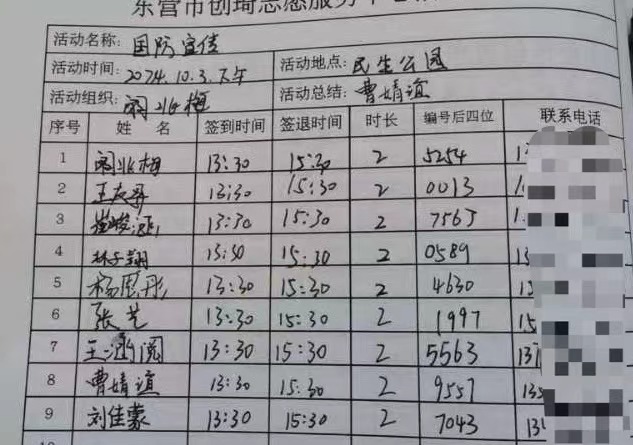 东营市创琦志愿服务中心
活动名称: 国防宣传
活动时间: 2024.10.3.下午 活动地点: 民生公园
活动组织: 闫兆梅 活动总结: 曹婧谊
序号 姓 名 签到时间 签退时间 时长 编号后四位 联系电话
1 闫兆梅 13:30 15:30 2 5254
2 13:30 15:30 2 0013
3 13:30 15:30 2 7563
4 林子翔 13:30 15:30 2 0589
5 杨恩彤 13:30 15:30 2 4630
6 张艺 13:30 15:30 2 1997 15
7 王涵阅 13:30 15:30 2 5563 137
8 曹婧谊 13:30 15:30 2 9557 13
9 刘佳蒙 13:30 15:30 2 7043 13